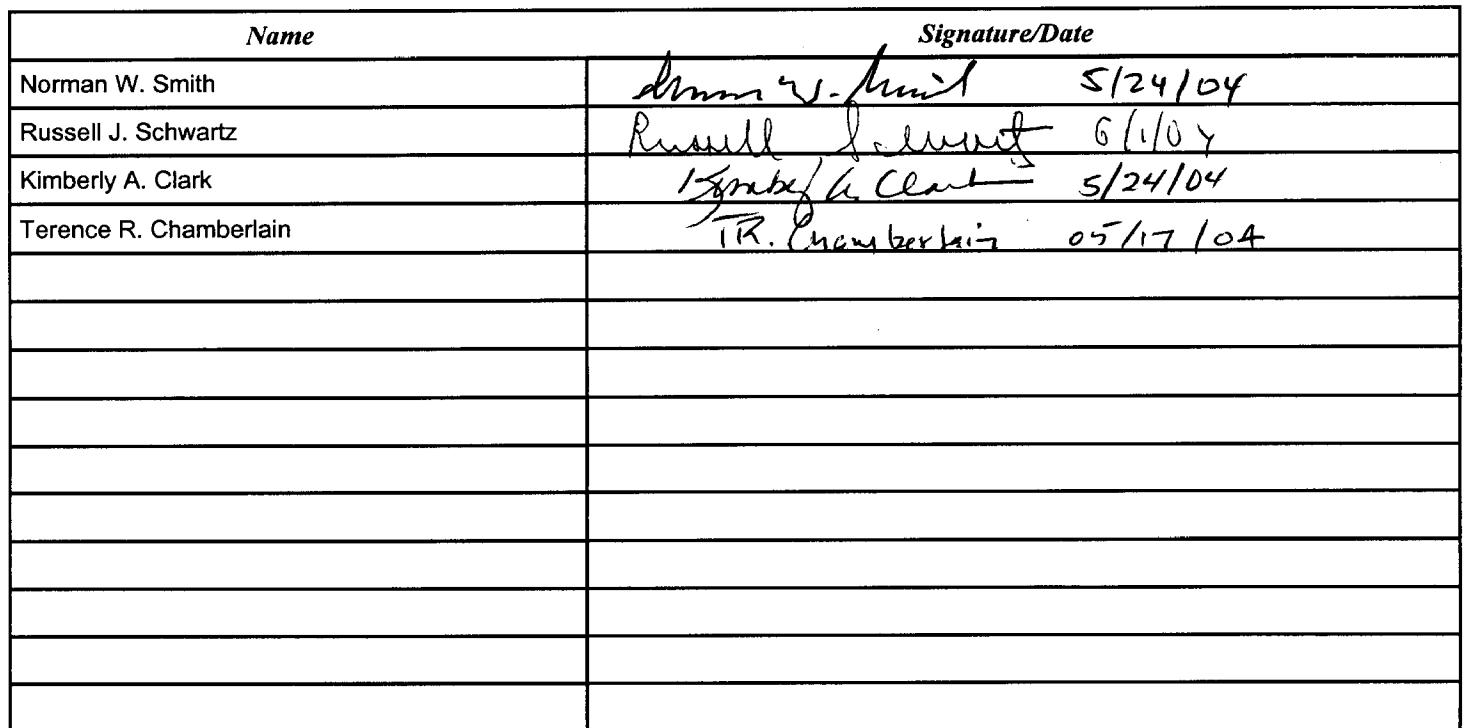 Name Signature/Date
Norman W. Smith Norman W. Smith 5/24/04
Russell J. Schwartz Russell Schwartz 6/1/04
Kimberly A. Clark Kimberly A. Clark 5/24/04
Terence R. Chamberlain T.R. Chamberlain 05/17/04